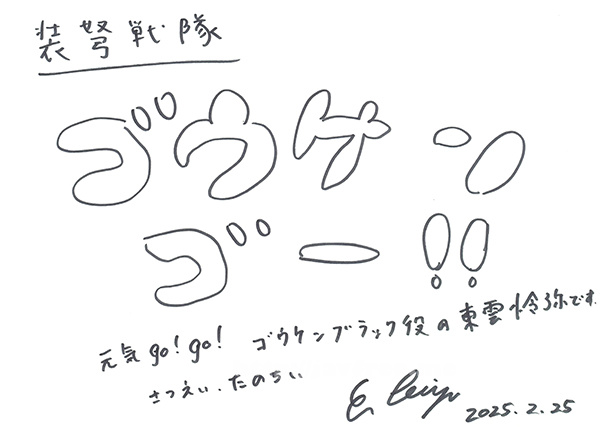 装弩戦隊
ゴウケン
ゴー!!
元気go!go! ゴウケンブラック役の東雲怜弥です.
さつえい、たのちい
2025.2.25